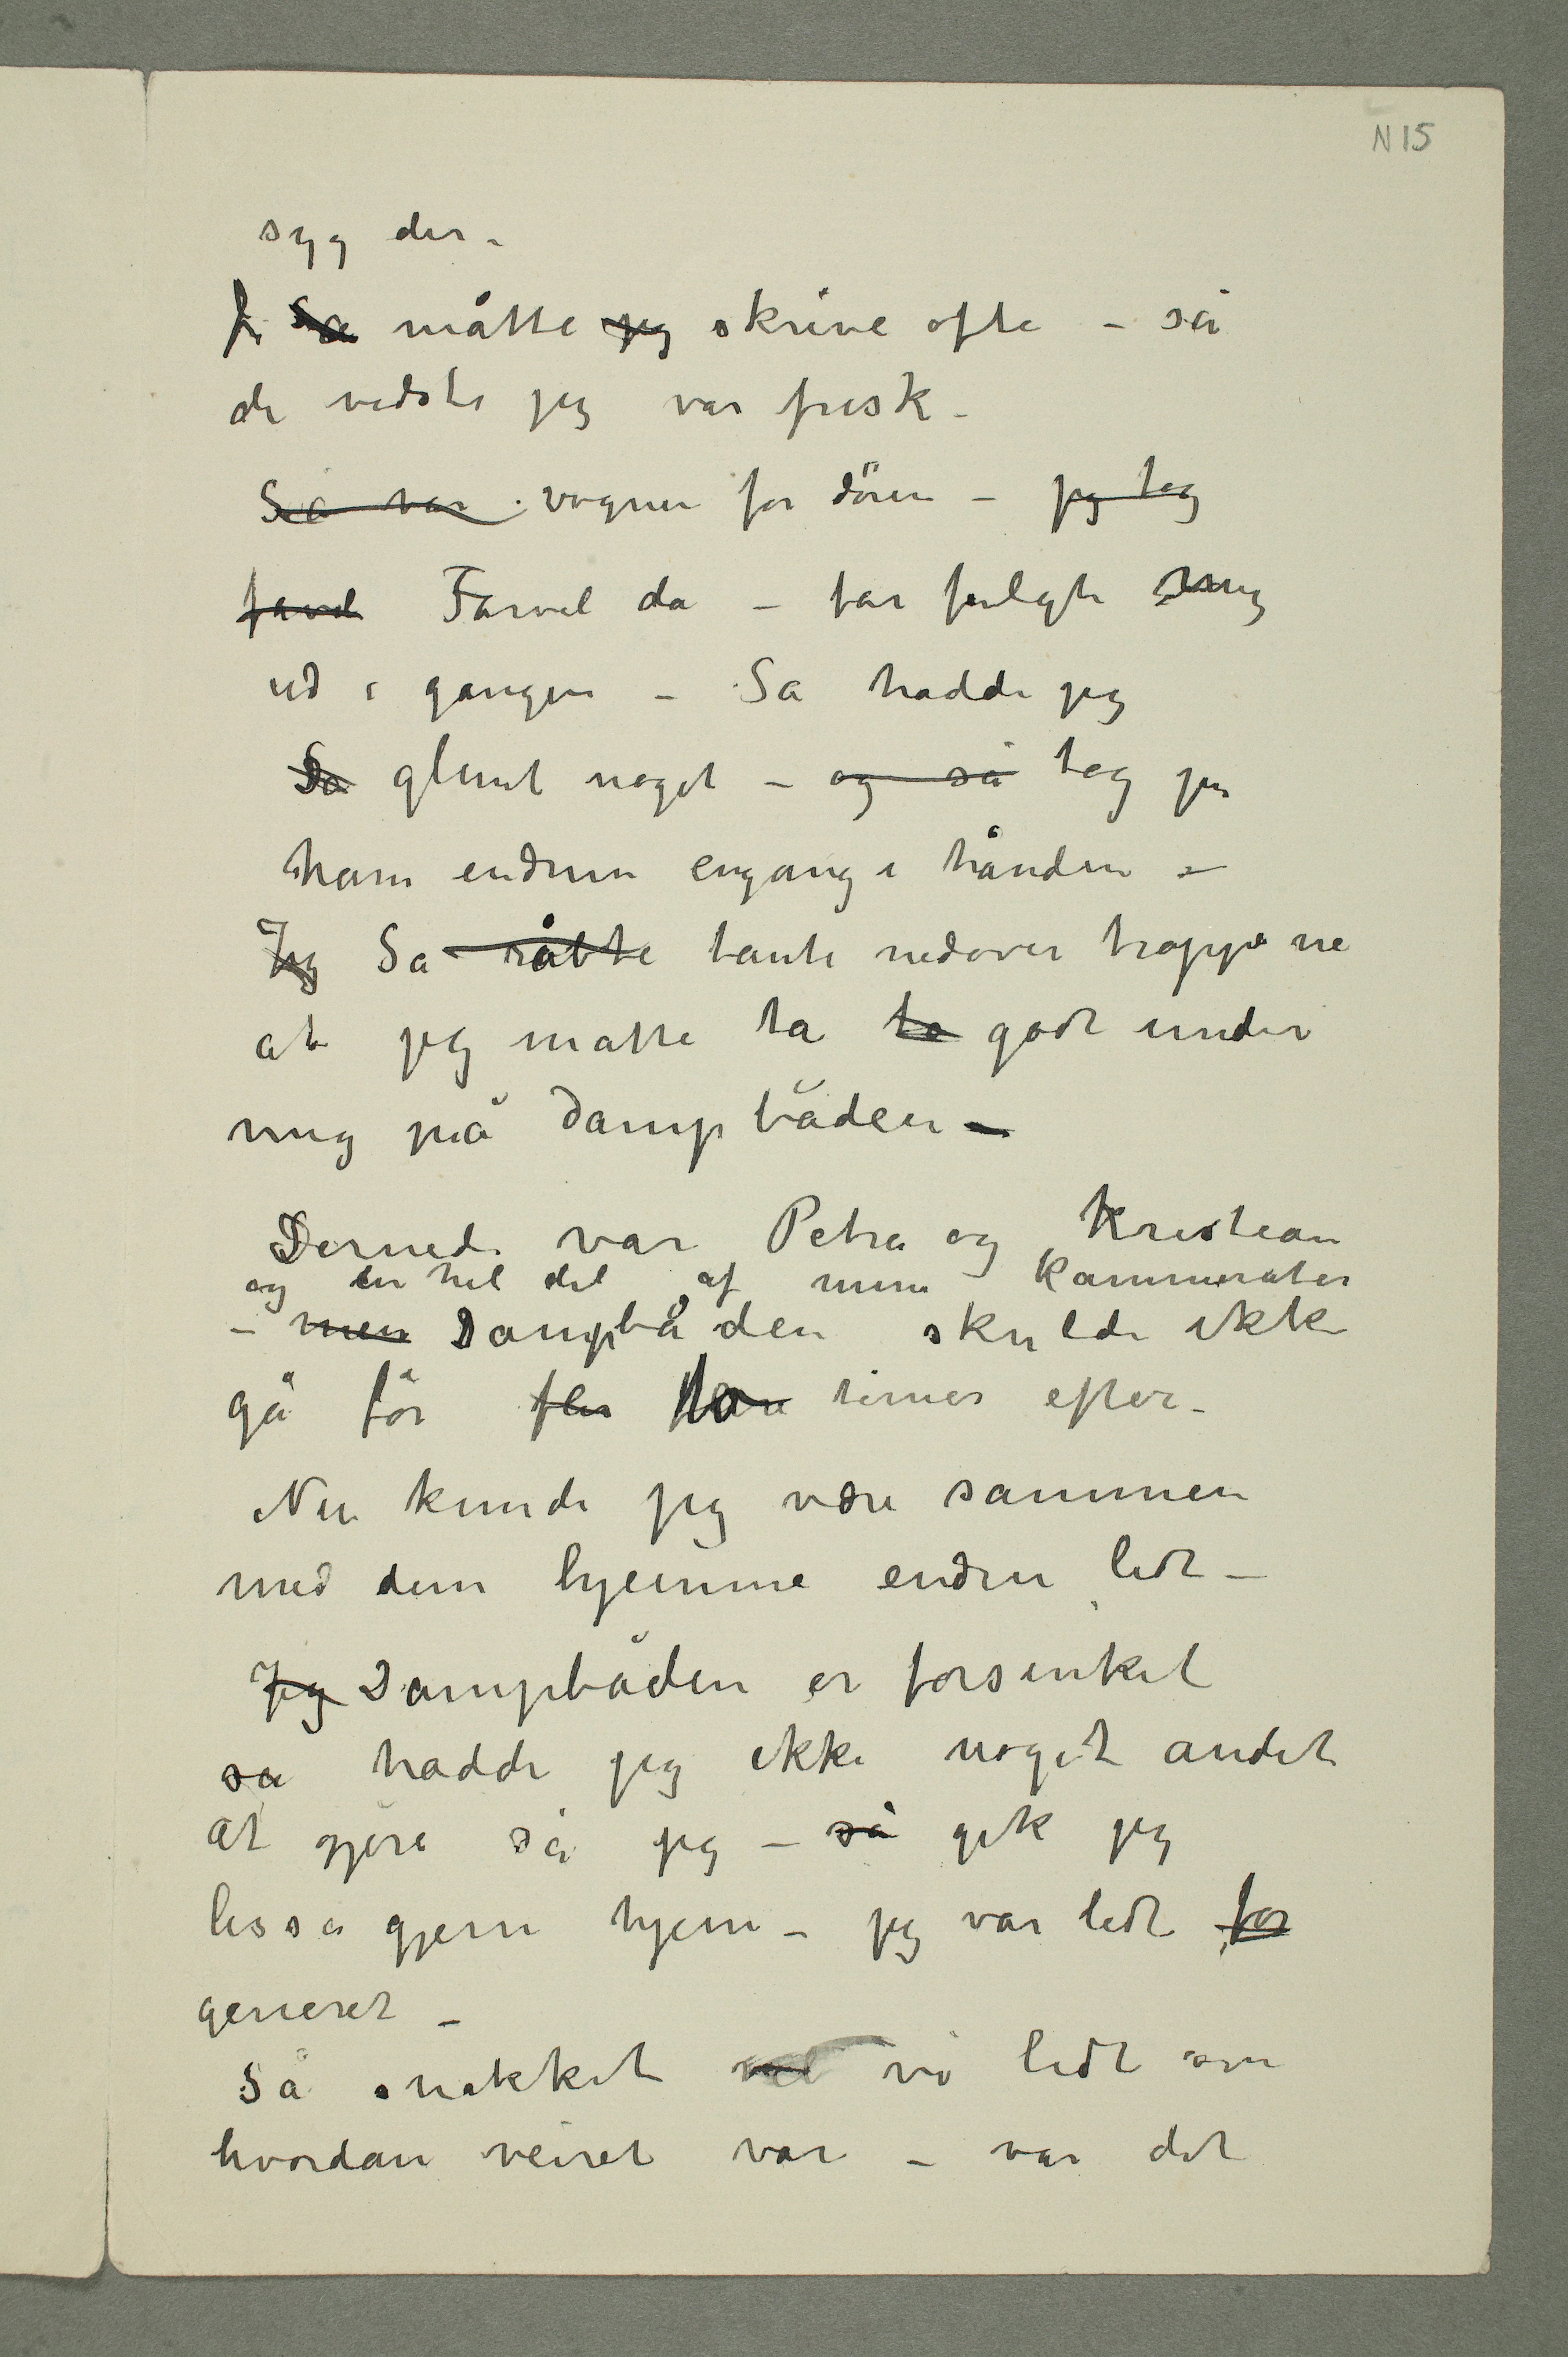 N 15
syg der –
Så måtte jeg skrive ofte – så
de vidste jeg var frisk –
Så var vognen for døren – jeg tog
favel Farvel da – far fulgte mig
ud i gangen – Så hadde jeg
Så glemt noget – og så tog jeg
ham endnu engang i hånden –
Jeg Så råbte tante nedover trappene
at jeg måtte ta ta godt under
mig på dampbåden –
Dernede var Petra og Kristian
og en hel del af mine kammerater
– men Dampbåden skulde ikke
gå før fler timer efter –
Nu kunde jeg være sammen
med dem hjemme endnu lidt –
Jeg Dampbåden er forsinket
så hadde jeg ikke noget andet
at gjøre så jeg – så gik jeg
lisså gjerne hjem – jeg var lidt for
generet –
Så snakket vi lidt om
hvordan veiret var – var det